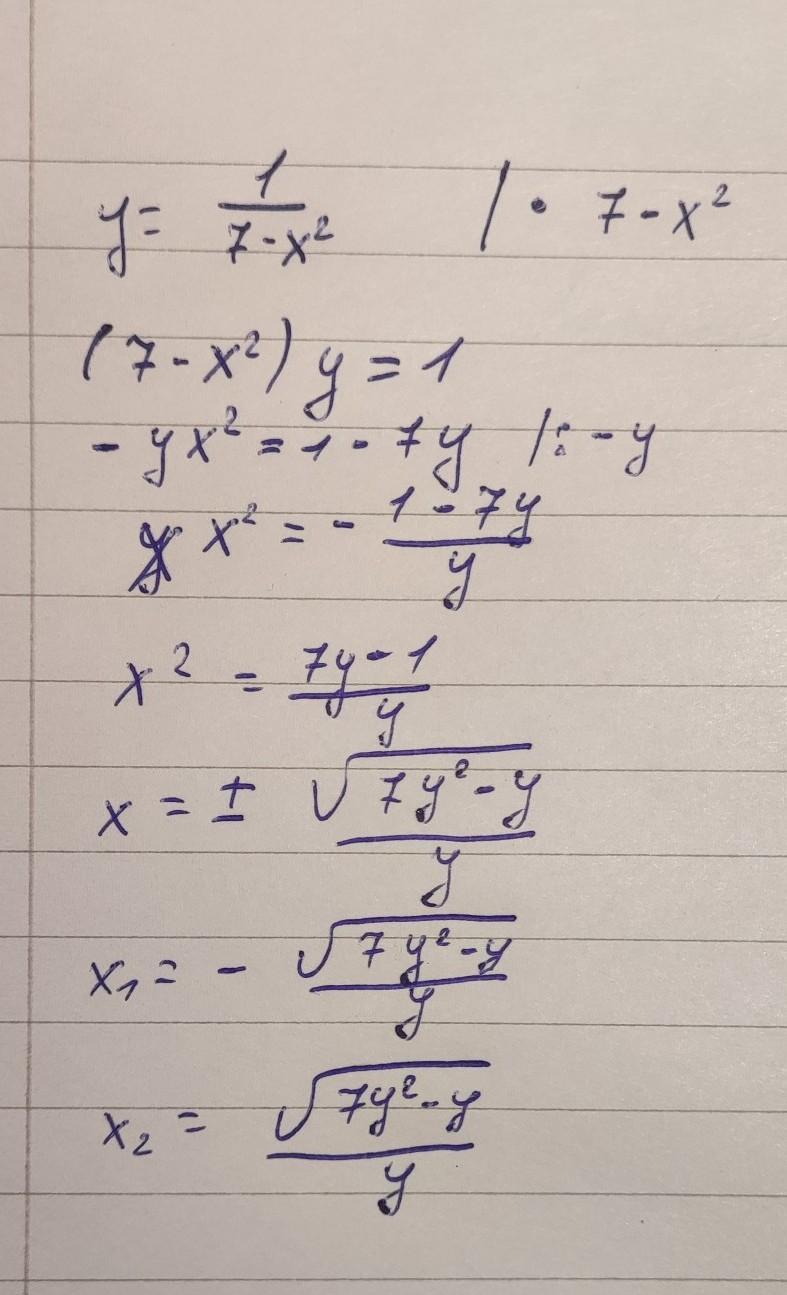 y = 1/(7-x²) | · 7-x²
(7-x²) y = 1
-yx² = 1-7y |: -y
x² = - (1-7y)/y
x² = (7y-1)/y
x = ± √(7y²-y)/y
x₁ = - √(7y²-y)/y
x₂ = √(7y²-y)/y